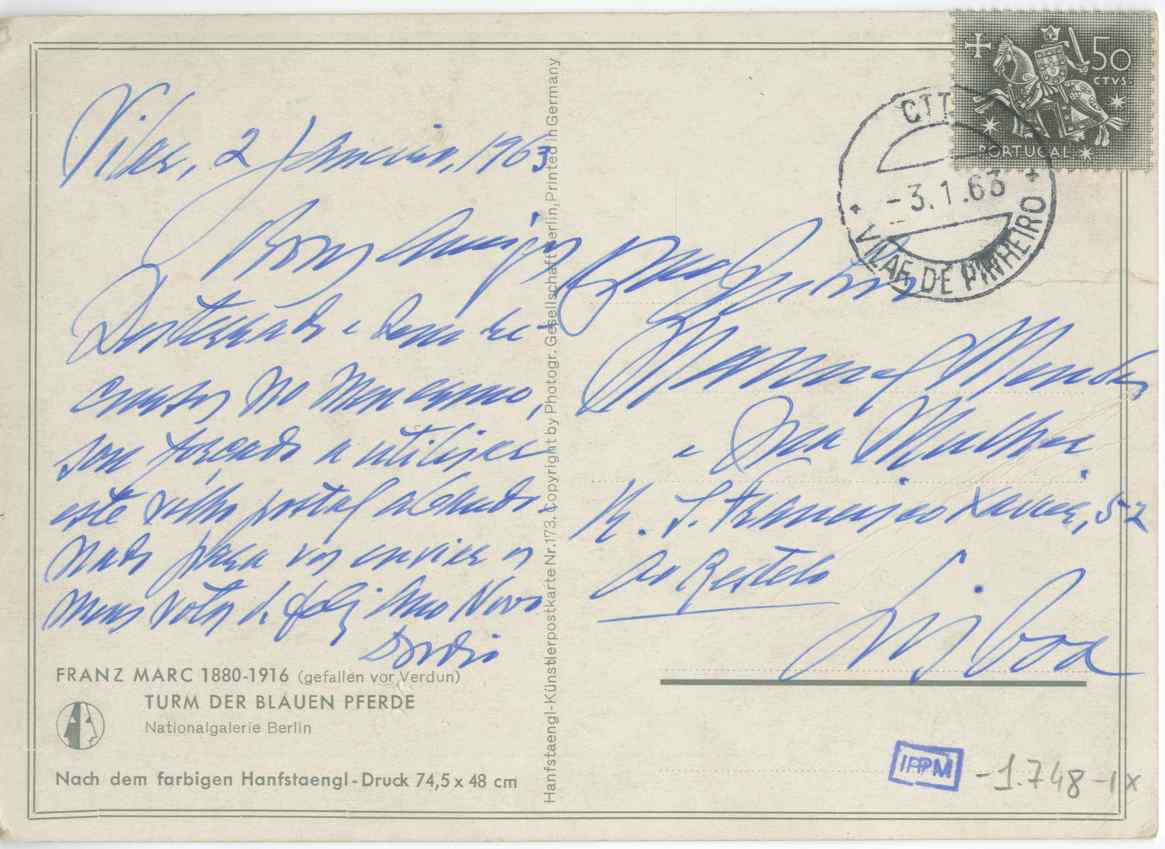 Vilar, 2 Janeiro, 1963
Bons Amigos
Desterrado e sem re-
cursos no momento,
sou forçado a utilizar
este velho postal
para vos enviar os
meus votos de feliz Ano Novo
Dordio
FRANZ MARC 1880-1916 (gefallen vor Verdun)
TURM DER BLAUEN PFERDE
Nationalgalerie Berlin
Nach dem farbigen Hanfstaengl-Druck 74,5 x 48 cm
Hanfstaengl-Künstlerpostkarte Nr. 173. Copyright by Photogr. Gesellschaft Berlin, Printed in Germany
50
CTVS.
PORTUGAL
CTT
-3.1.63
VILAR DE PINHEIRO
Manuel Mendes
e Sua Mulher
R. S. Francisco Xavier, 52
Ao Restelo
Lisboa
IPPM
-1.748-1x